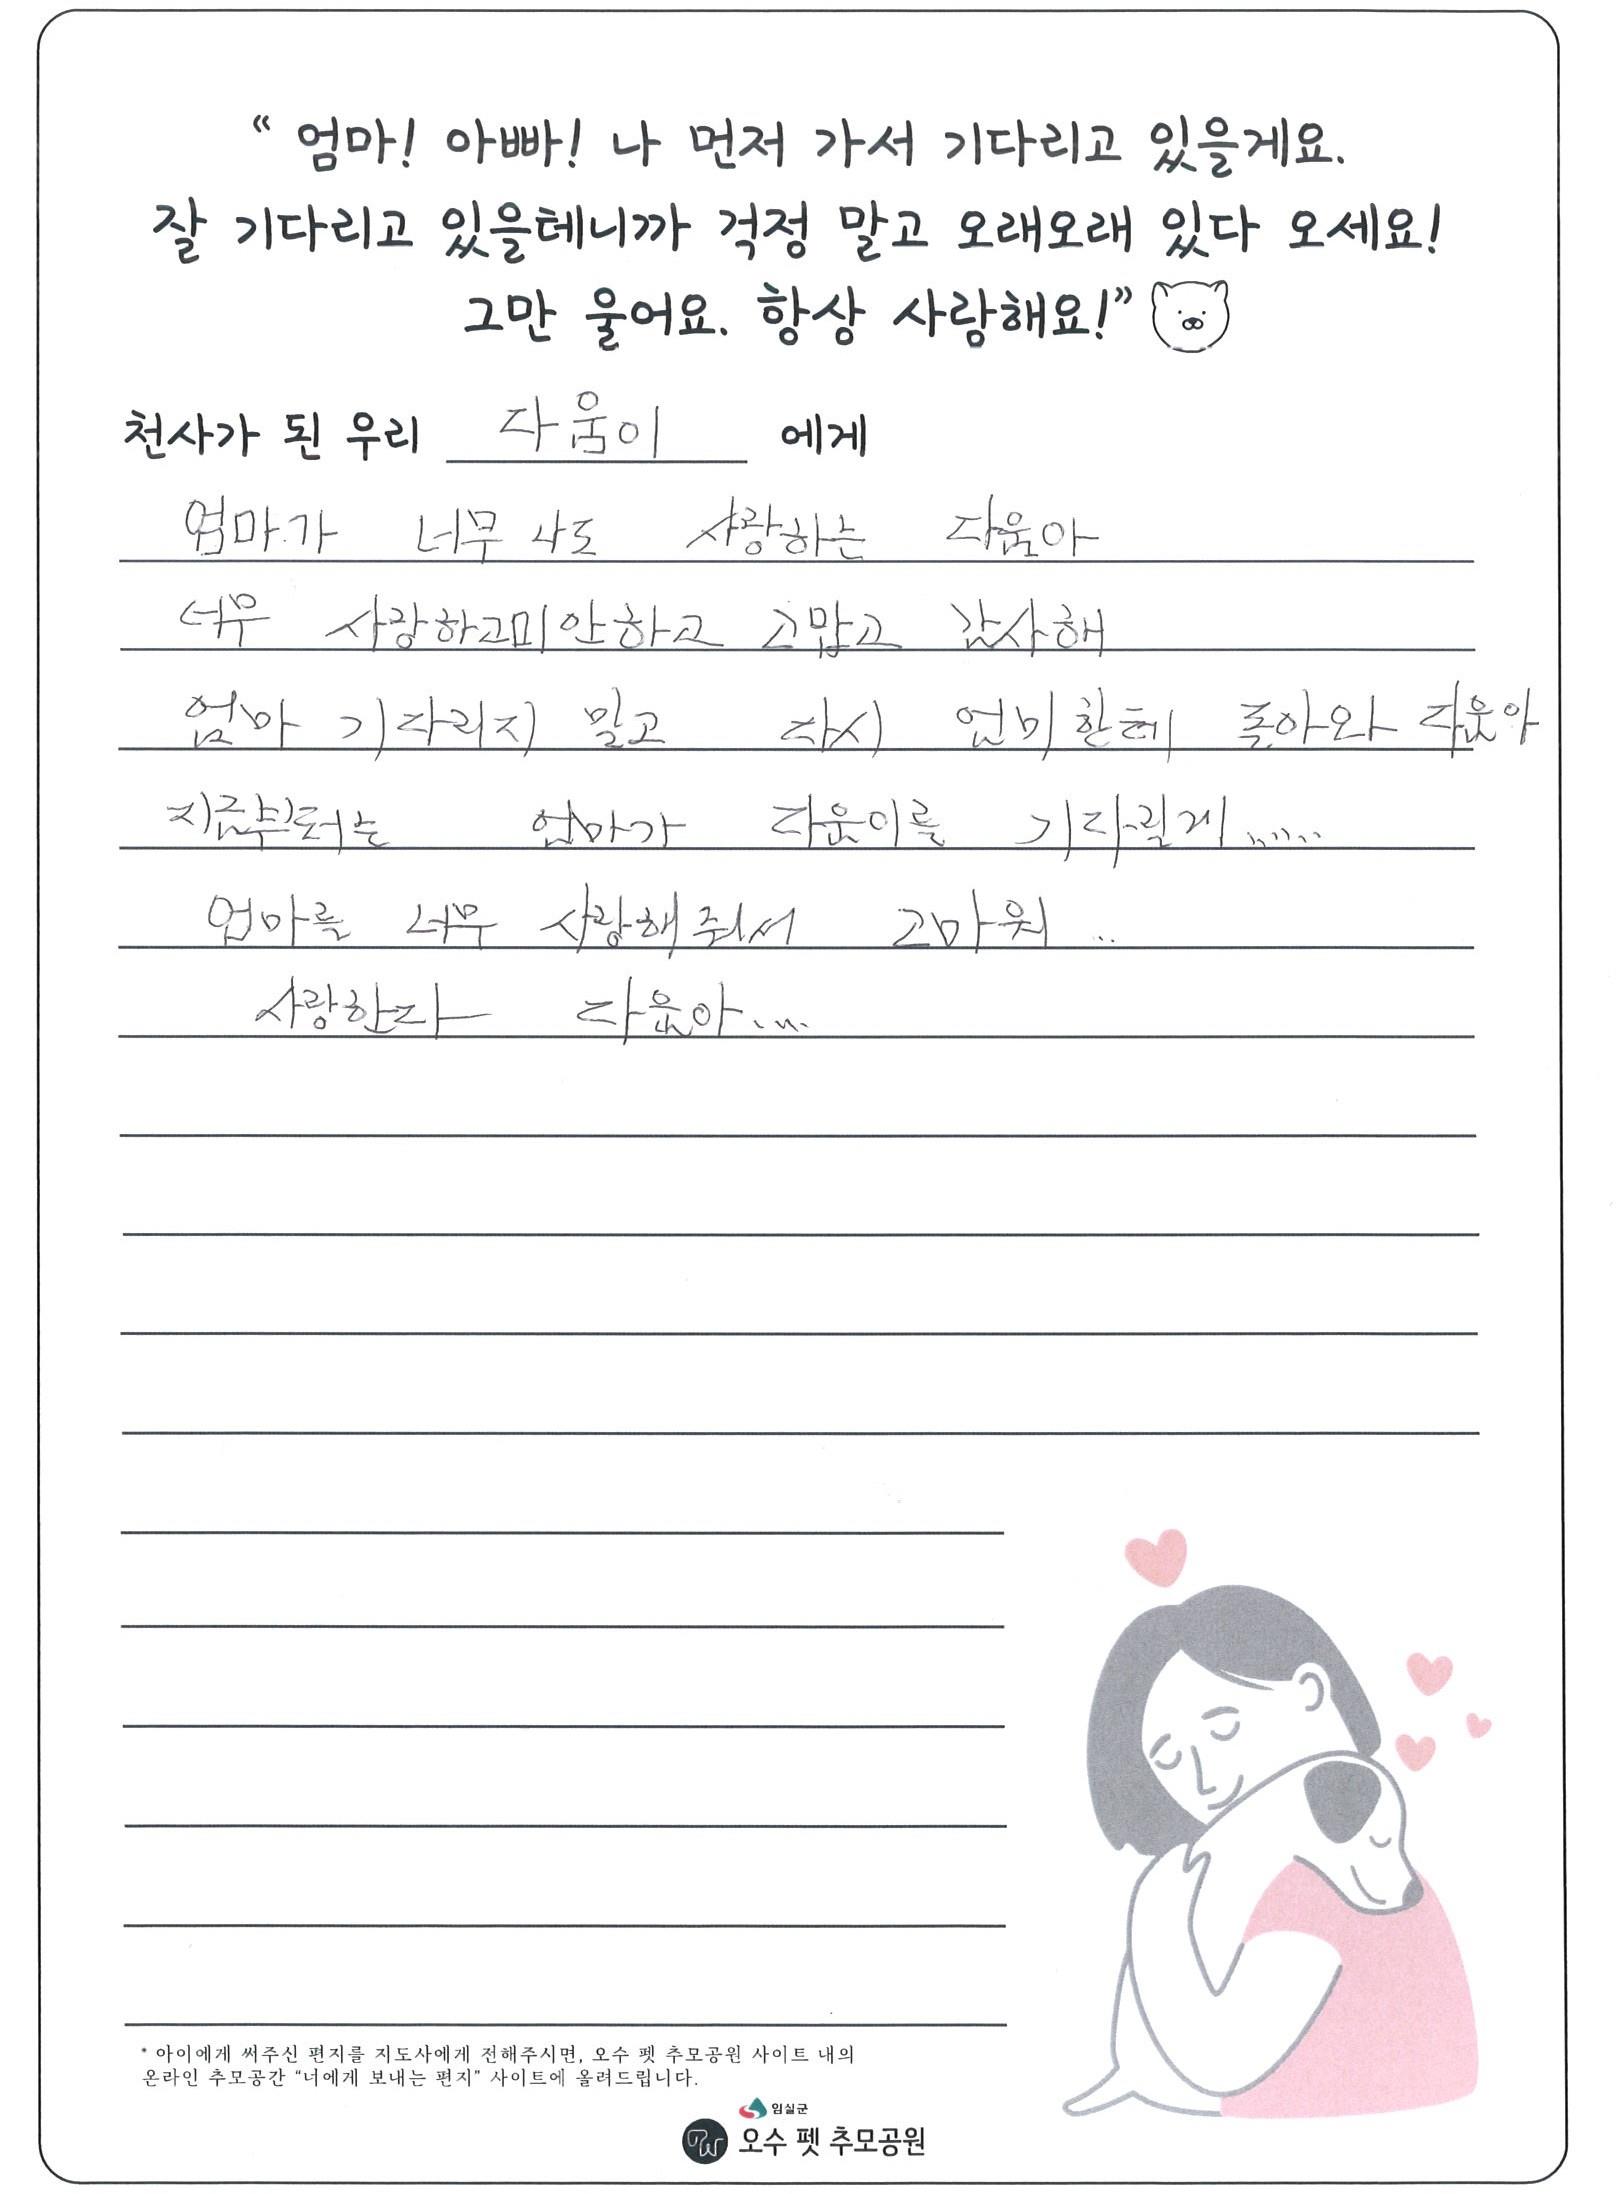 “ 엄마! 아빠! 나 먼저 가서 기다리고 있을게요.
잘 기다리고 있을테니까 걱정 말고 오래오래 있다 오세요!
그만 울어요. 항상 사랑해요!”
천사가 된 우리 다움이 에게
엄마가 너무 나도 사랑하는 다움아
너무 사랑하고미안하고 고맙고 감사해
엄마 기다리지 말고 다시 엄마한테 돌아와 다움아
지금부터는 엄마가 다움이를 기다릴게......
엄마를 너무 사랑해줘서 고마워 ..
사랑한다 다움아....
* 아이에게 써주신 편지를 지도사에게 전해주시면, 오수 펫 추모공원 사이트 내의
온라인 추모공간 “너에게 보내는 편지” 사이트에 올려드립니다.
임실군
오수 펫 추모공원